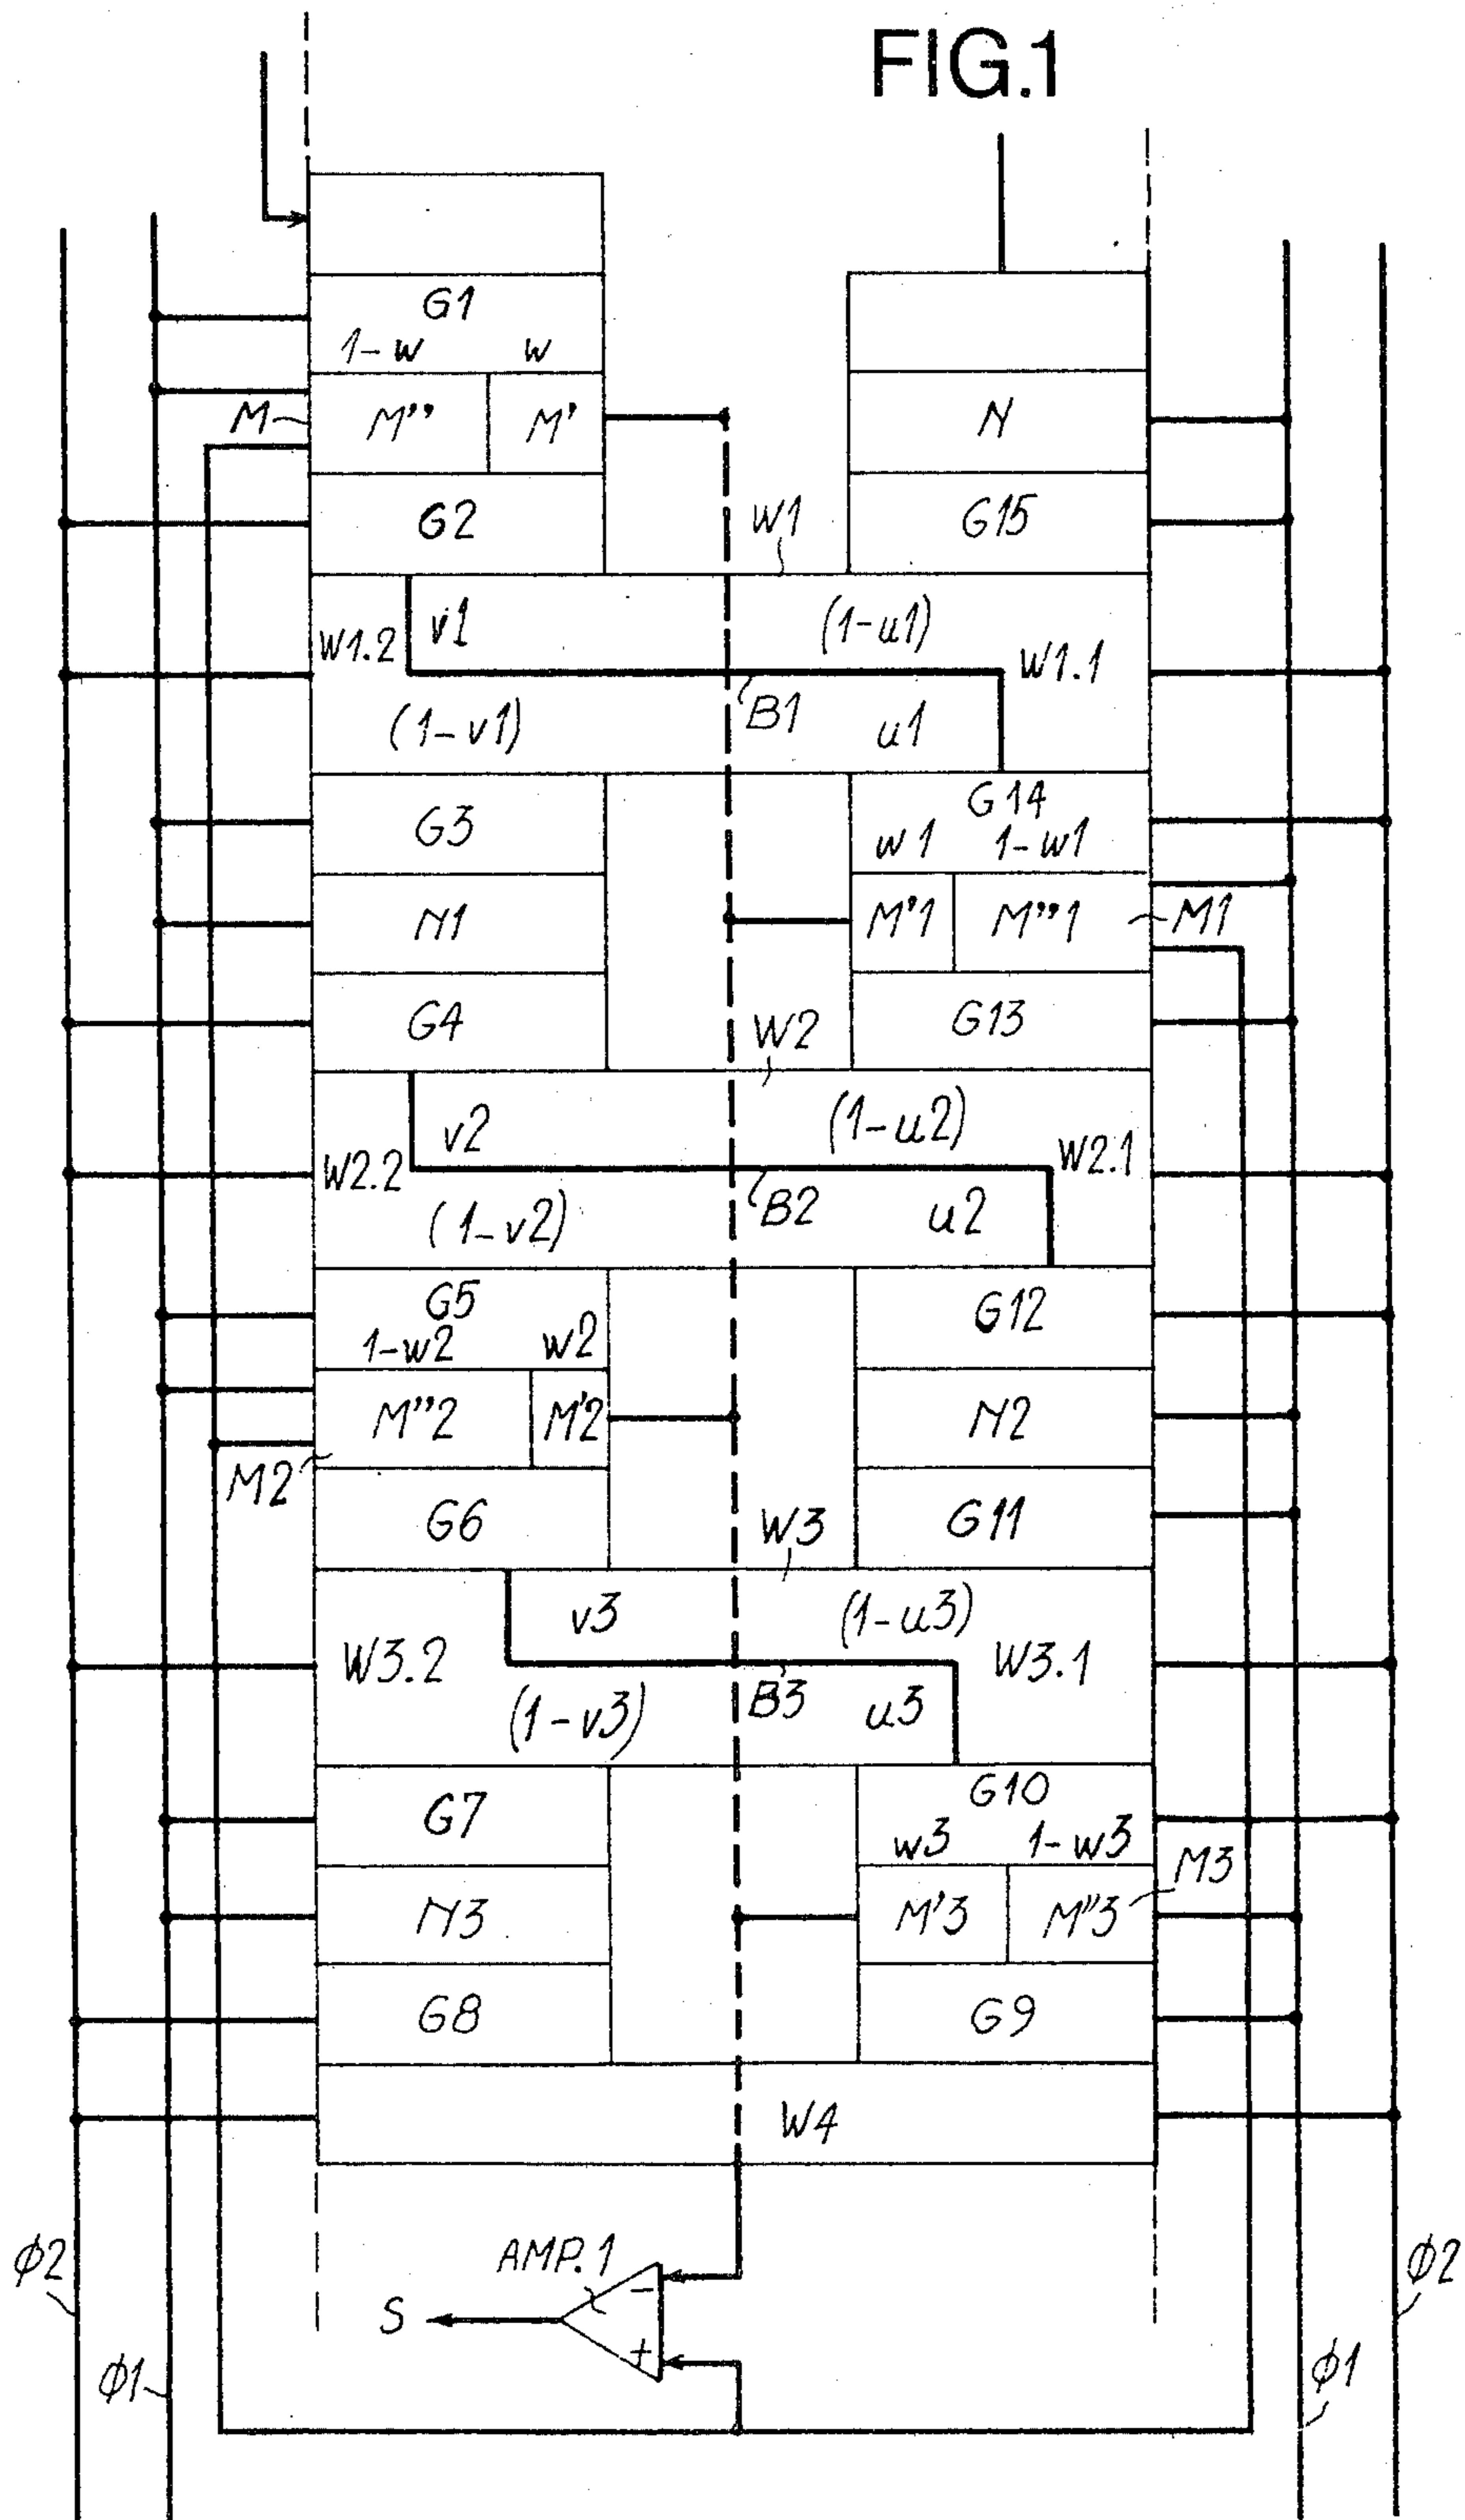 FIG.1
G1
1-w w
M M'' M' N
G2 W1 G15
v1 (1-u1)
W1.2 W1.1
(1-v1) B1 u1
G3 G14
w1 1-w1
N1 M'1 M''1 M1
G4 W2 G13
v2 (1-u2)
W2.2 W2.1
(1-v2) B2 u2
G5 G12
1-w2 w2
M''2 M'2 N2
M2
G6 W3 G11
v3 (1-u3)
W3.2 W3.1
(1-v3) B3 u3
G7 G10
w3 1-w3
M3
N3 M'3 M''3
G8 G9
W4
ϕ2 AMP.1 ϕ2
-
S
+
ϕ1 ϕ1